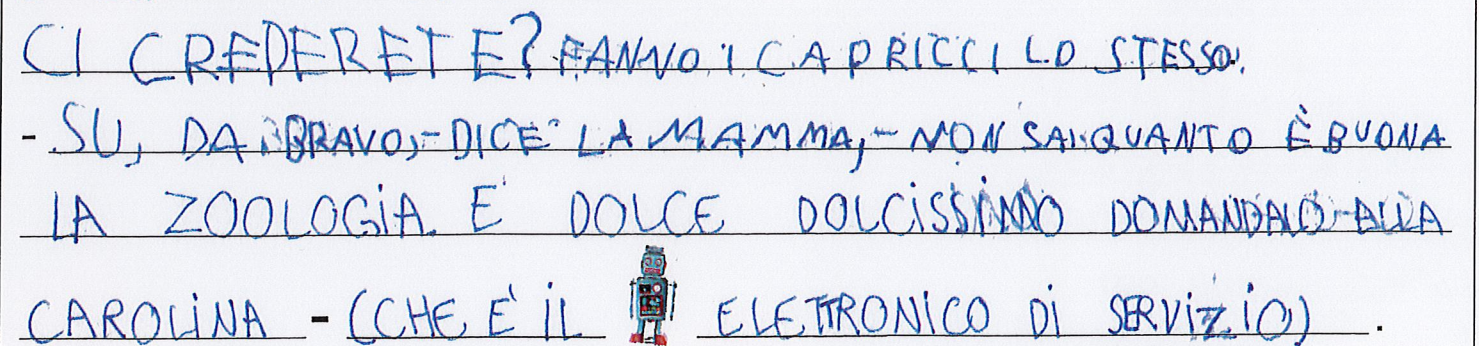 CI CREDERETE? FANNO I CAPRICCI LO STESSO.
- SU, DA BRAVO,- DICE LA MAMMA,- NON SAI QUANTO È BUONA
LA ZOOLOGIA. E' DOLCE DOLCISSIMO DOMANDALO ALLA
CAROLINA - (CHE E' IL ELETTRONICO DI SERVIZIO) .